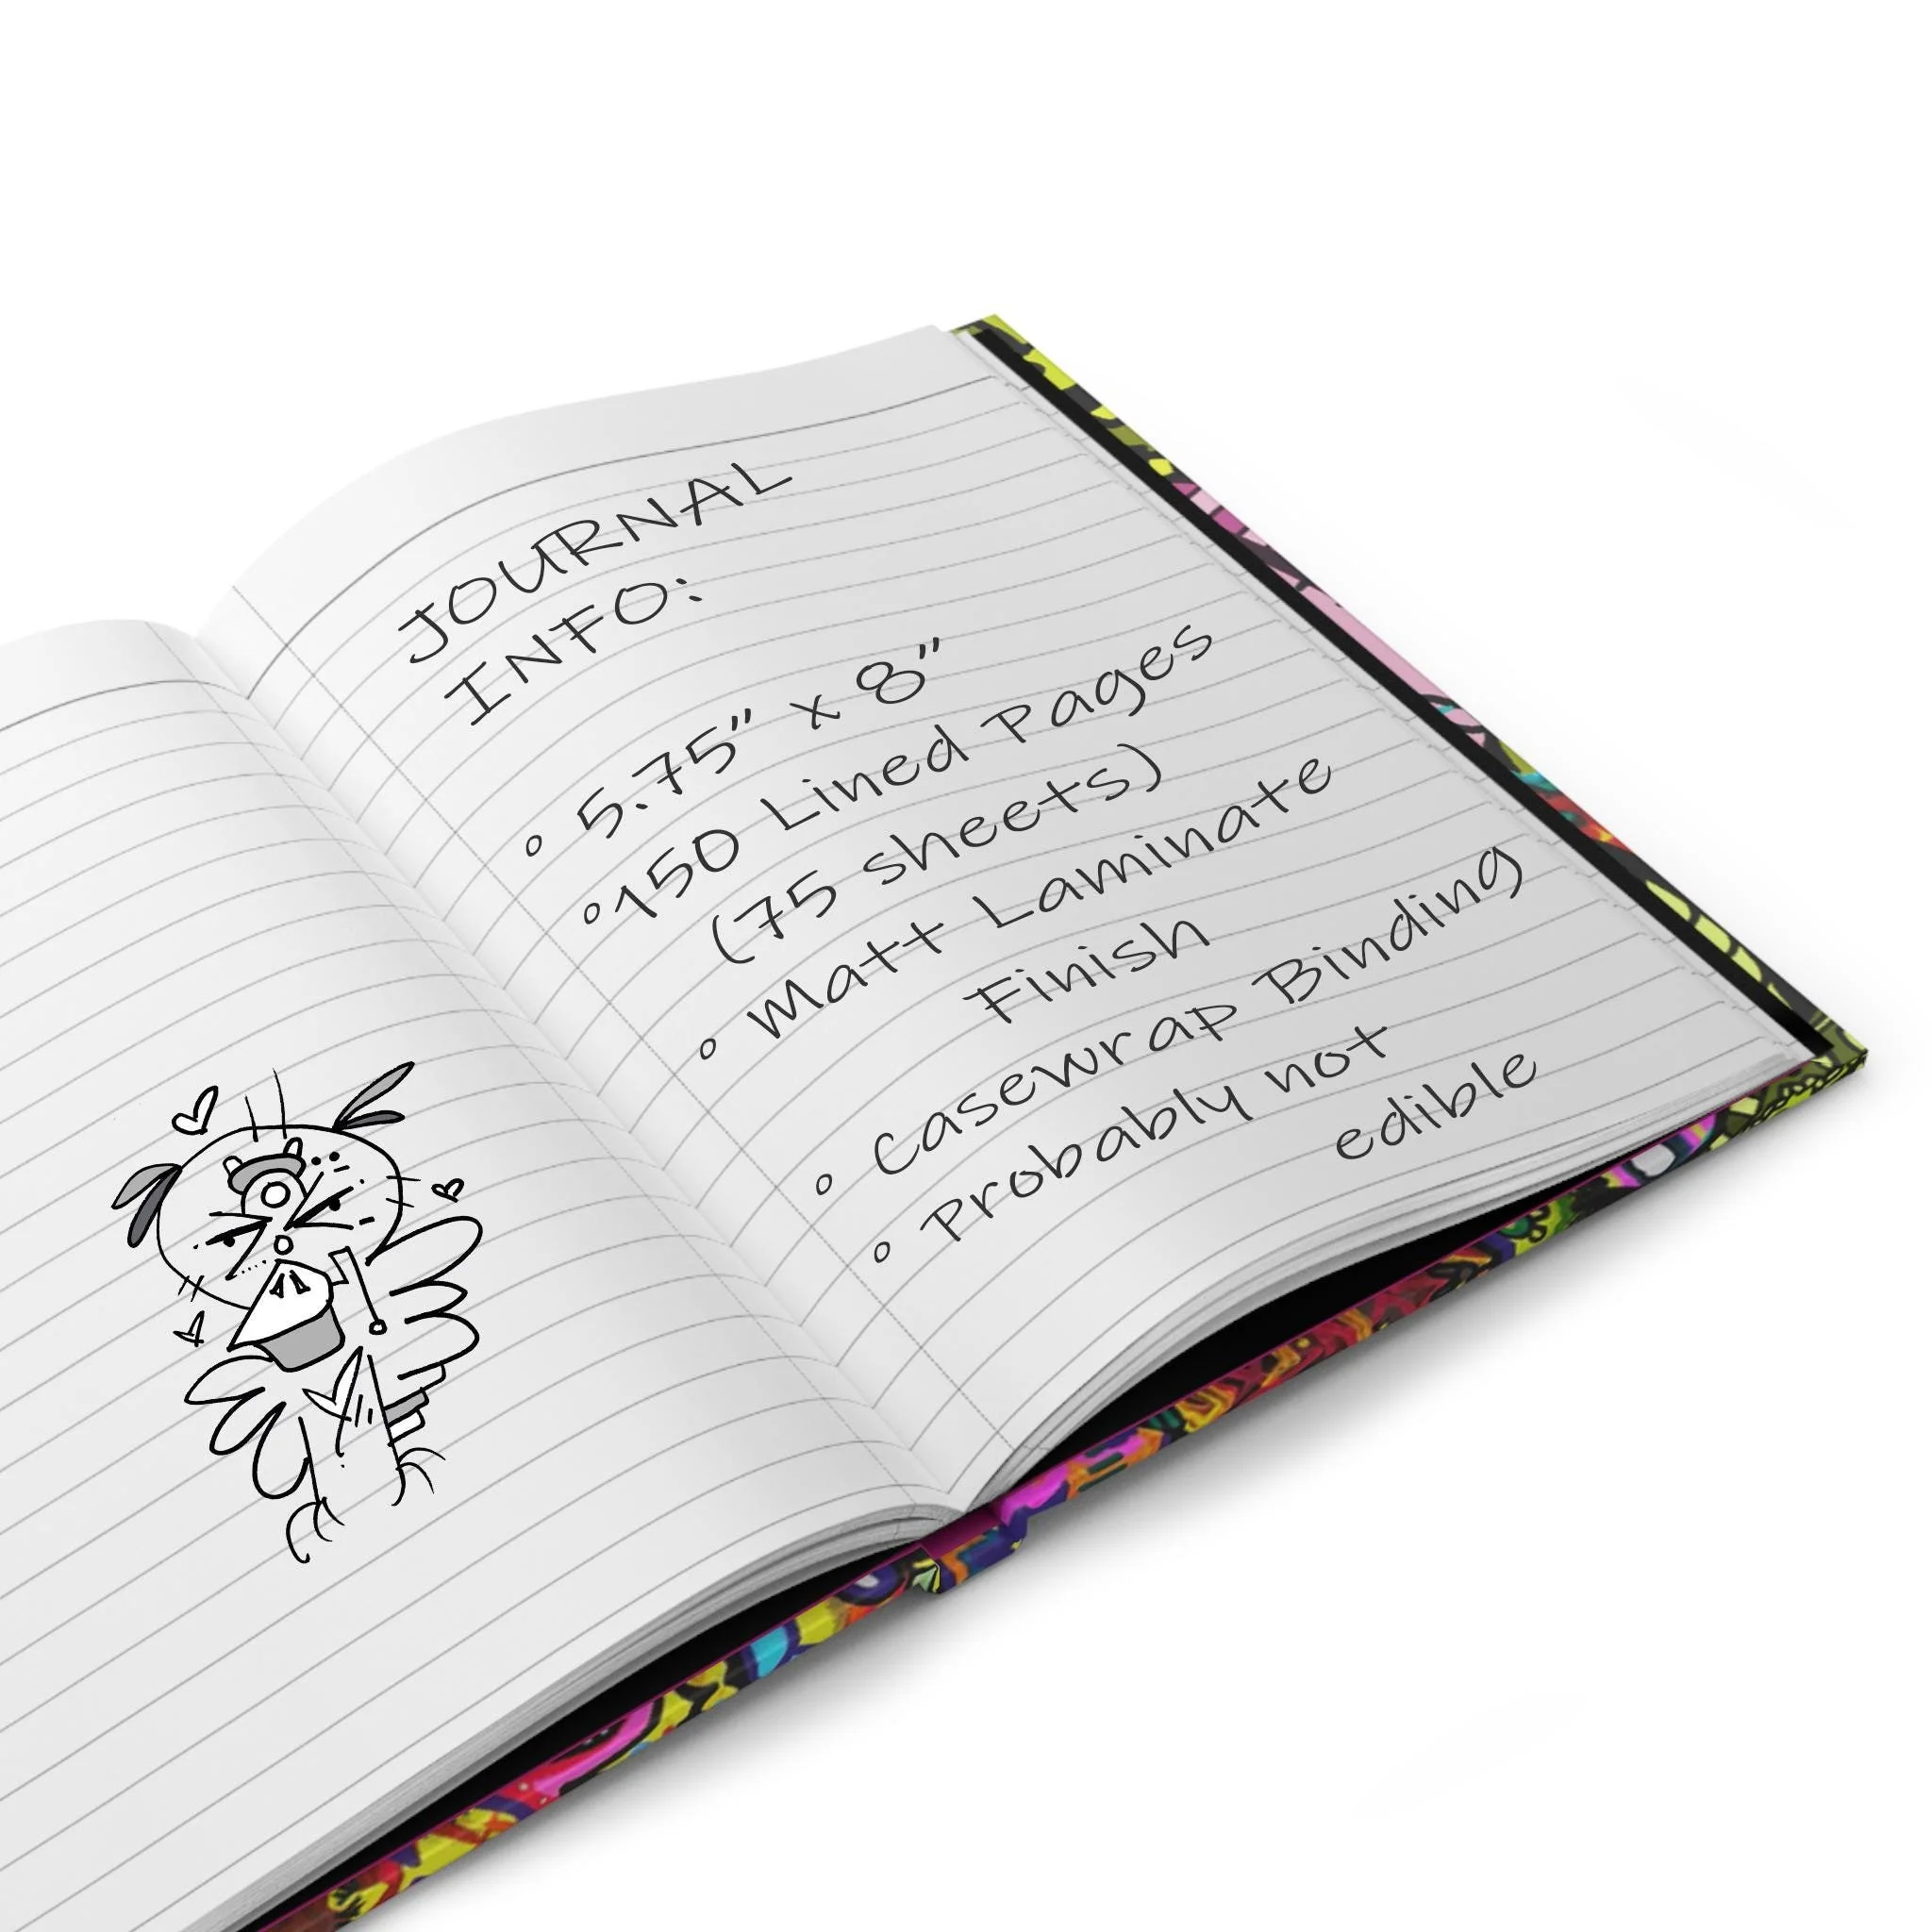 JOURNAL
INFO:
° 5.75" x 8"
° 150 Lined Pages
(75 sheets)
° Matt Laminate
Finish
° Casewrap Binding
° Probably not
edible